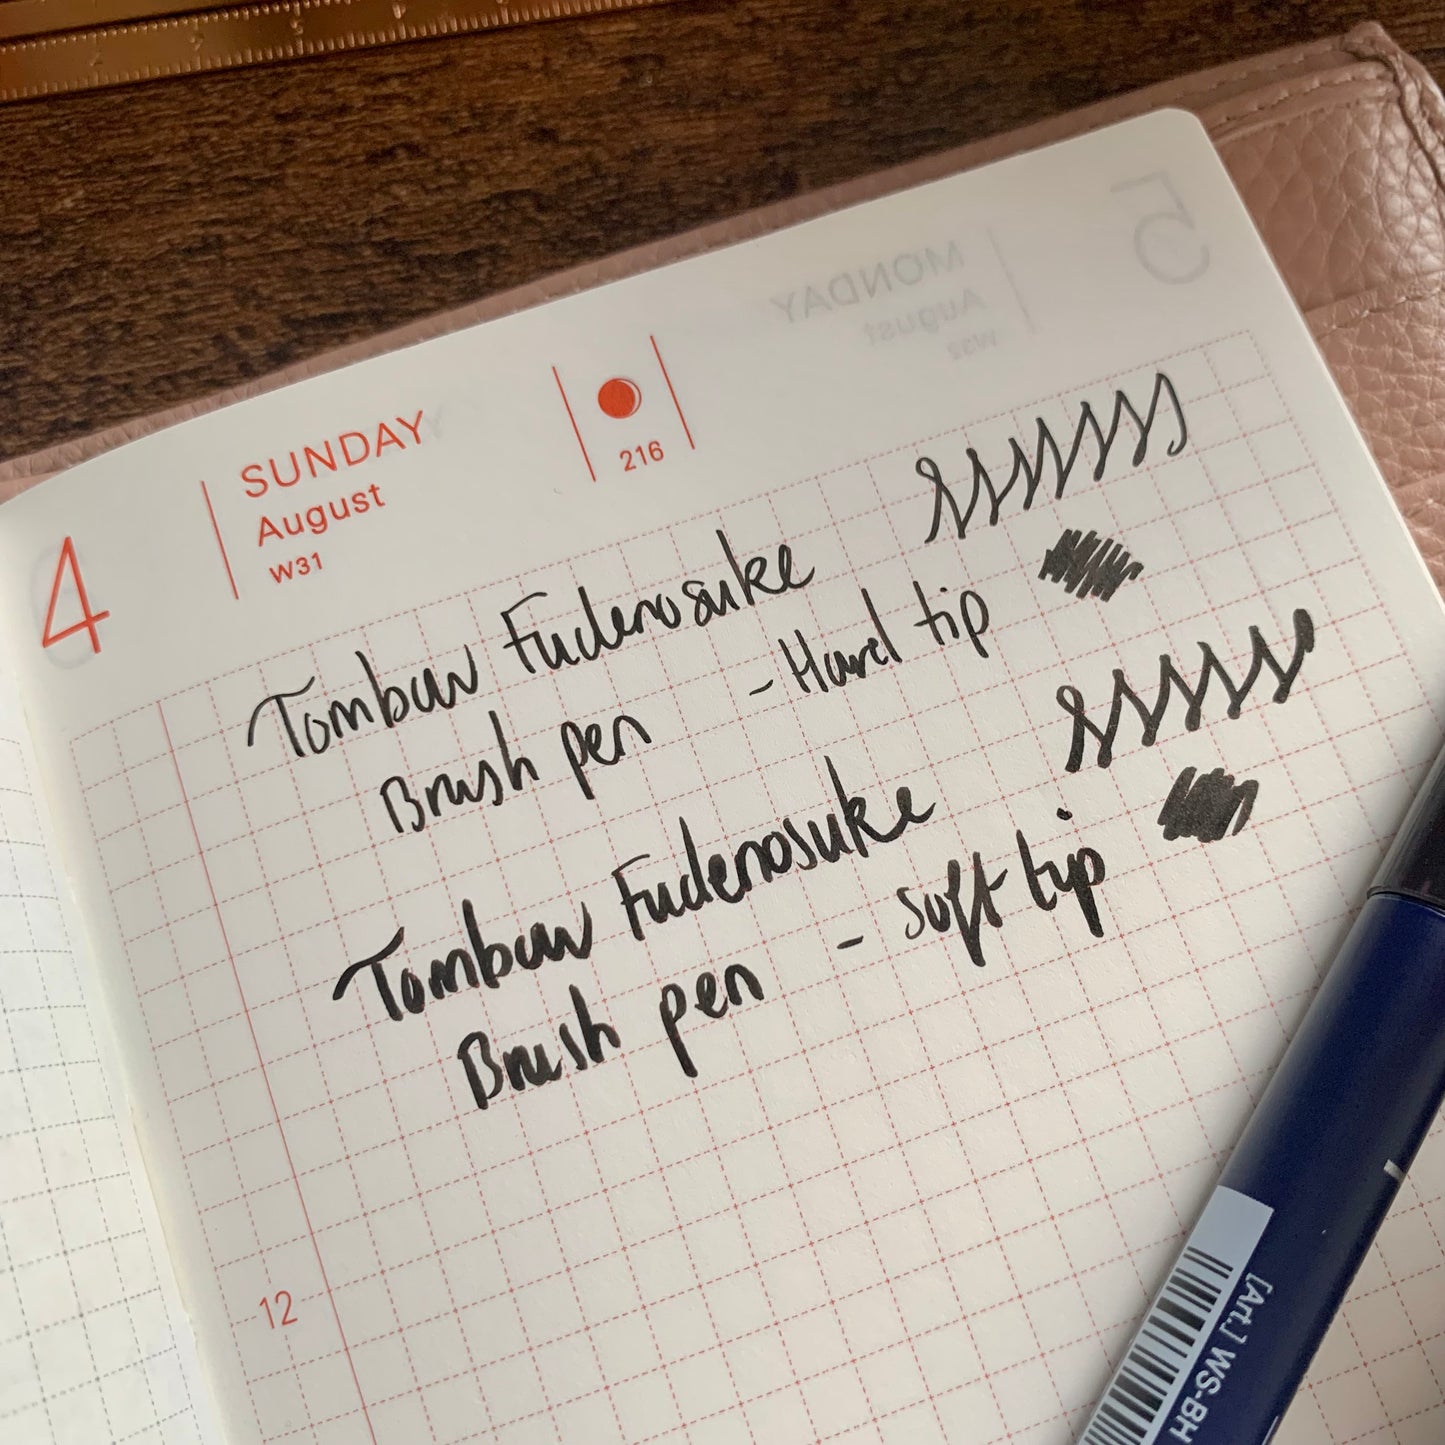 4
SUNDAY
August
W31
216
5
MONDAY
August
W32
Tombow Fudenosuke
Brush pen - Hard tip
Tombow Fudenosuke
Brush pen - soft tip
12
[Art.] WS-BH